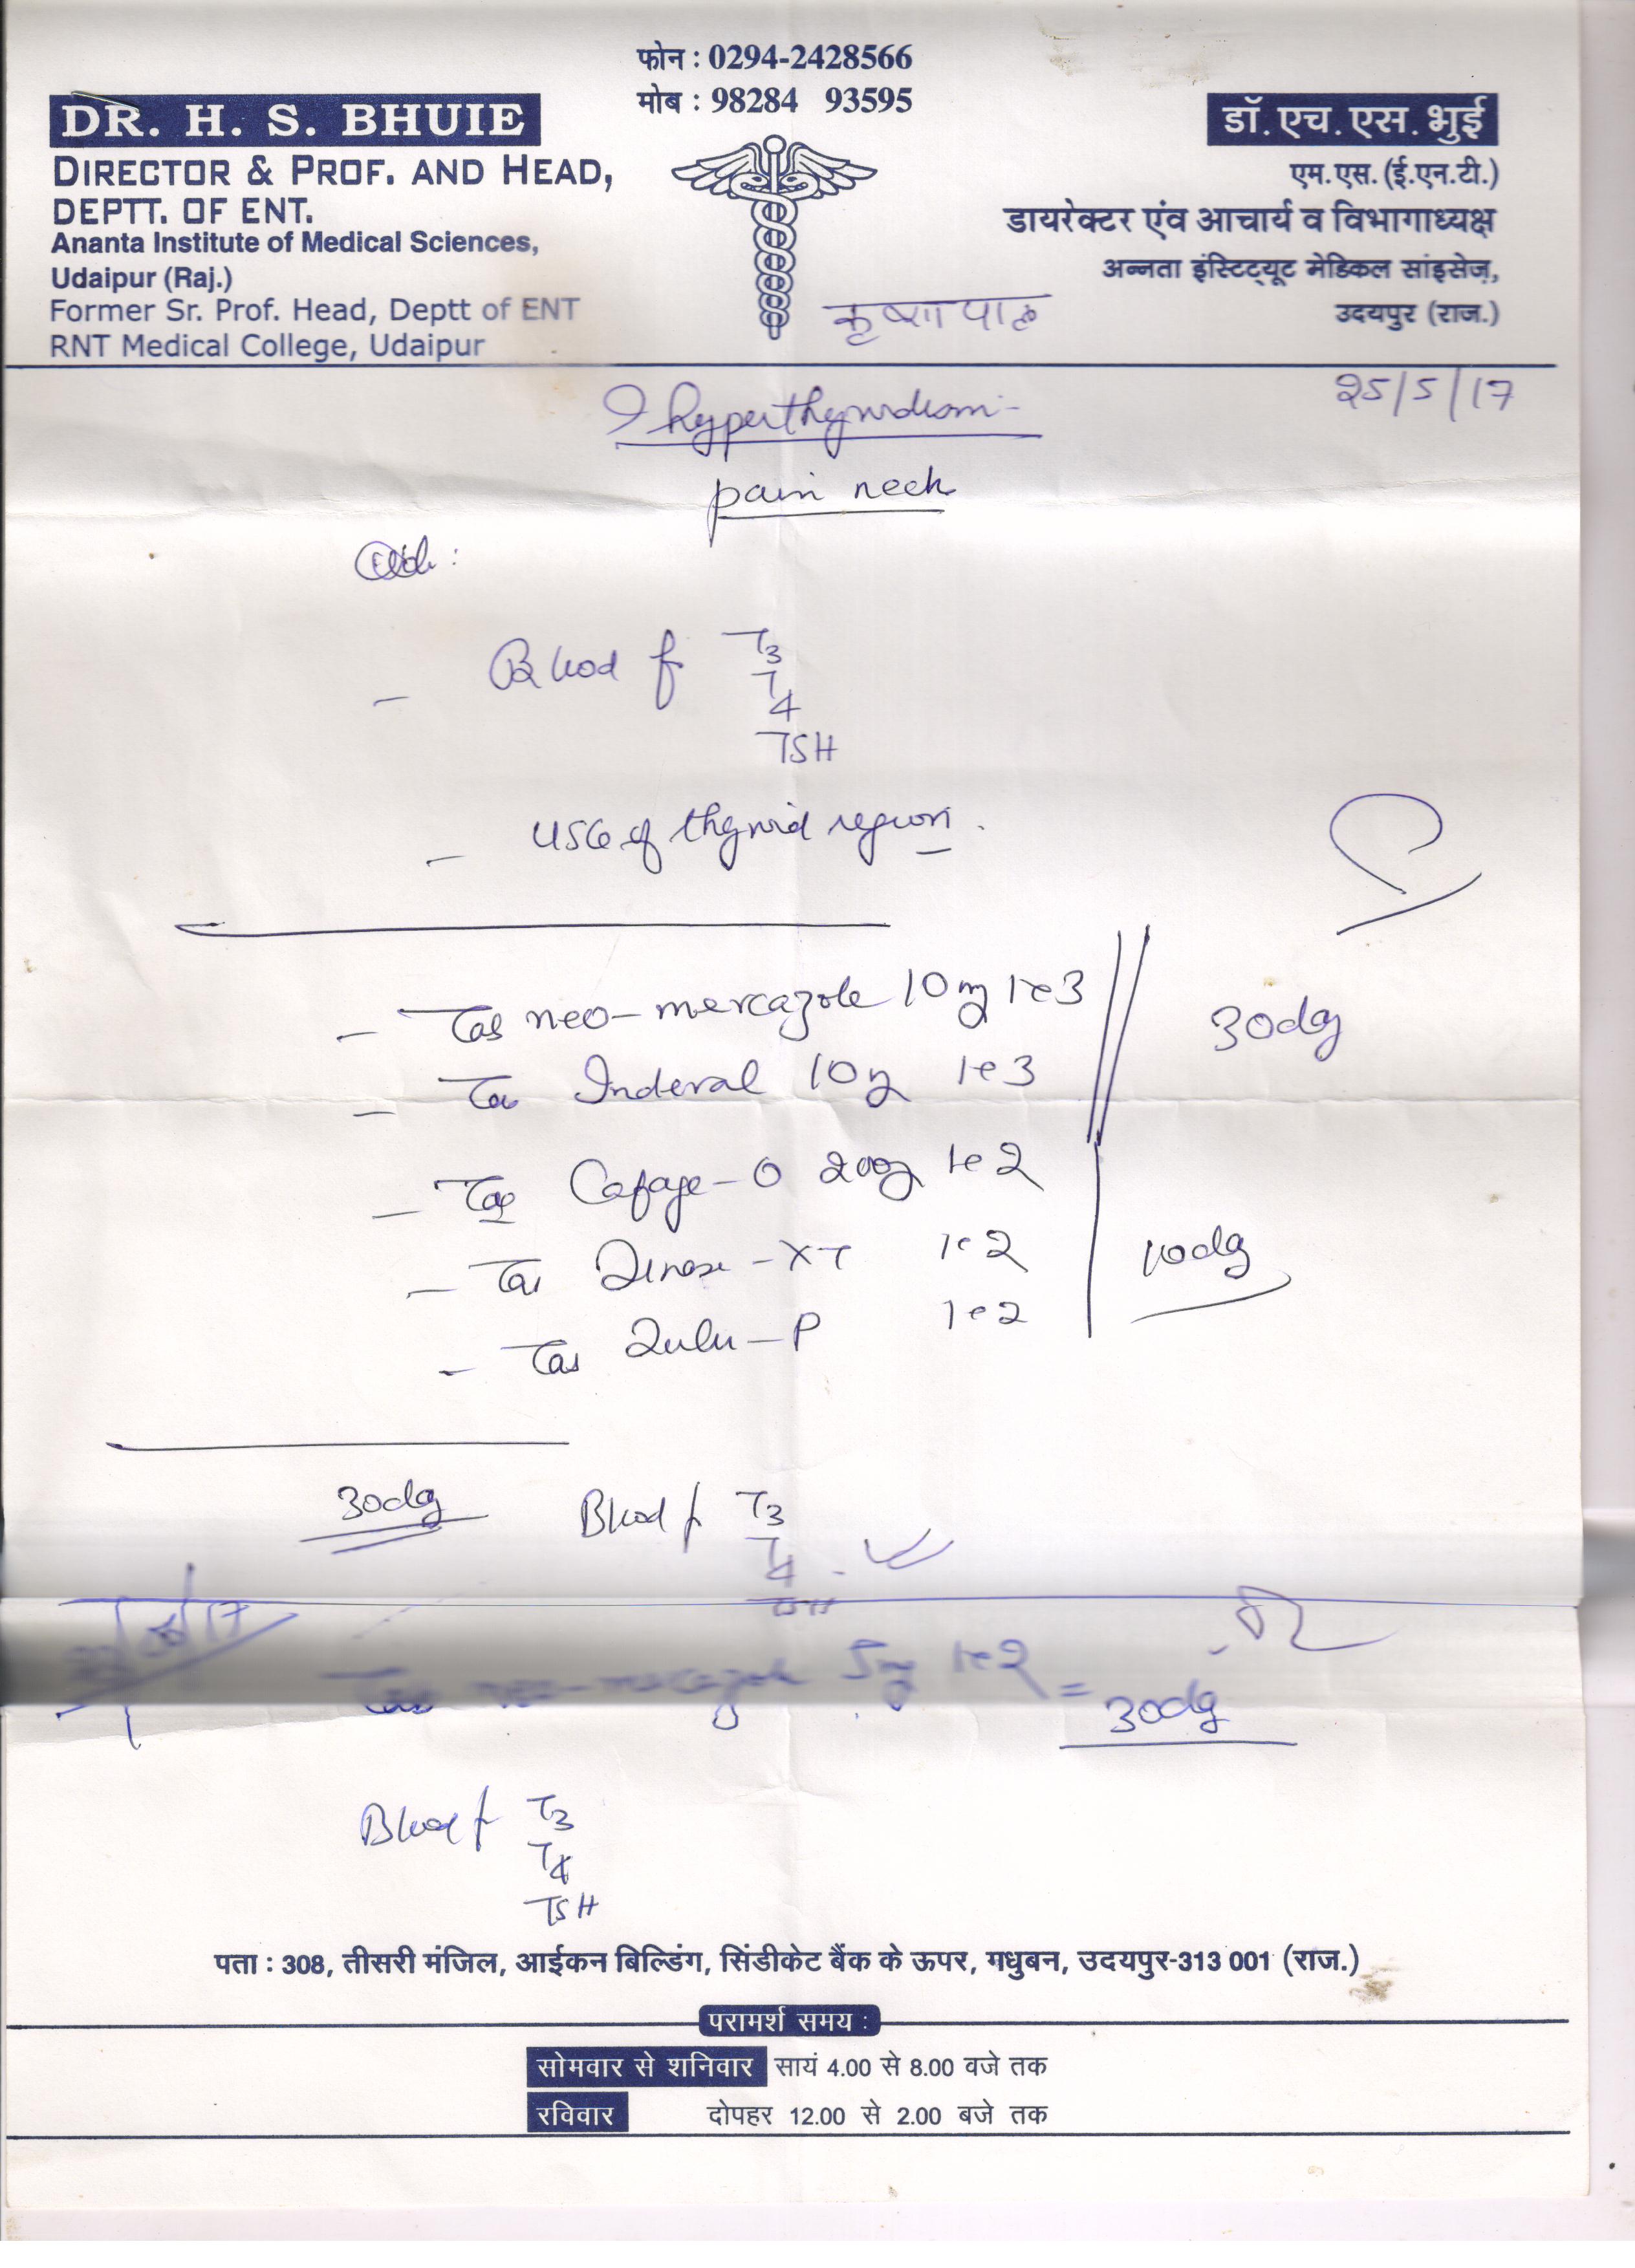 फोन : 0294-2428566
मोब : 98284 93595
DR. H. S. BHUIE
DIRECTOR & PROF. AND HEAD,
DEPTT. OF ENT.
Ananta Institute of Medical Sciences,
Udaipur (Raj.)
Former Sr. Prof. Head, Deptt of ENT
RNT Medical College, Udaipur
डॉ. एच. एस. भुई
एम.एस. (ई.एन.टी.)
डायरेक्टर एंव आचार्य व विभागाध्यक्ष
अन्नता इंस्टिट्यूट मेडिकल सांइसेज,
उदयपुर (राज.)
कृष्णा पाल
25/5/17
? hyperthyroidism -
pain neck
- Blood f T3
T4
TSH
- USG of thyroid region.
- Tab neo-mercazole 10mg 1e3
- Tab Inderal 10mg 1e3
30dy
- Tab Cefage-O 200mg 1e2
- Tab -XT 1e2
- Tab Zulu-P 1e2
10dy
30dy Blood f T3
T4
TSH
17
Tab neo-mercazole 5mg 1e2 = 30dy
Blood f T3
T4
TSH
पता : 308, तीसरी मंजिल, आईकन बिल्डिंग, सिंडीकेट बैंक के ऊपर, मधुबन, उदयपुर-313 001 (राज.)
परामर्श समय :
सोमवार से शनिवार सायं 4.00 से 8.00 वजे तक
रविवार दोपहर 12.00 से 2.00 बजे तक